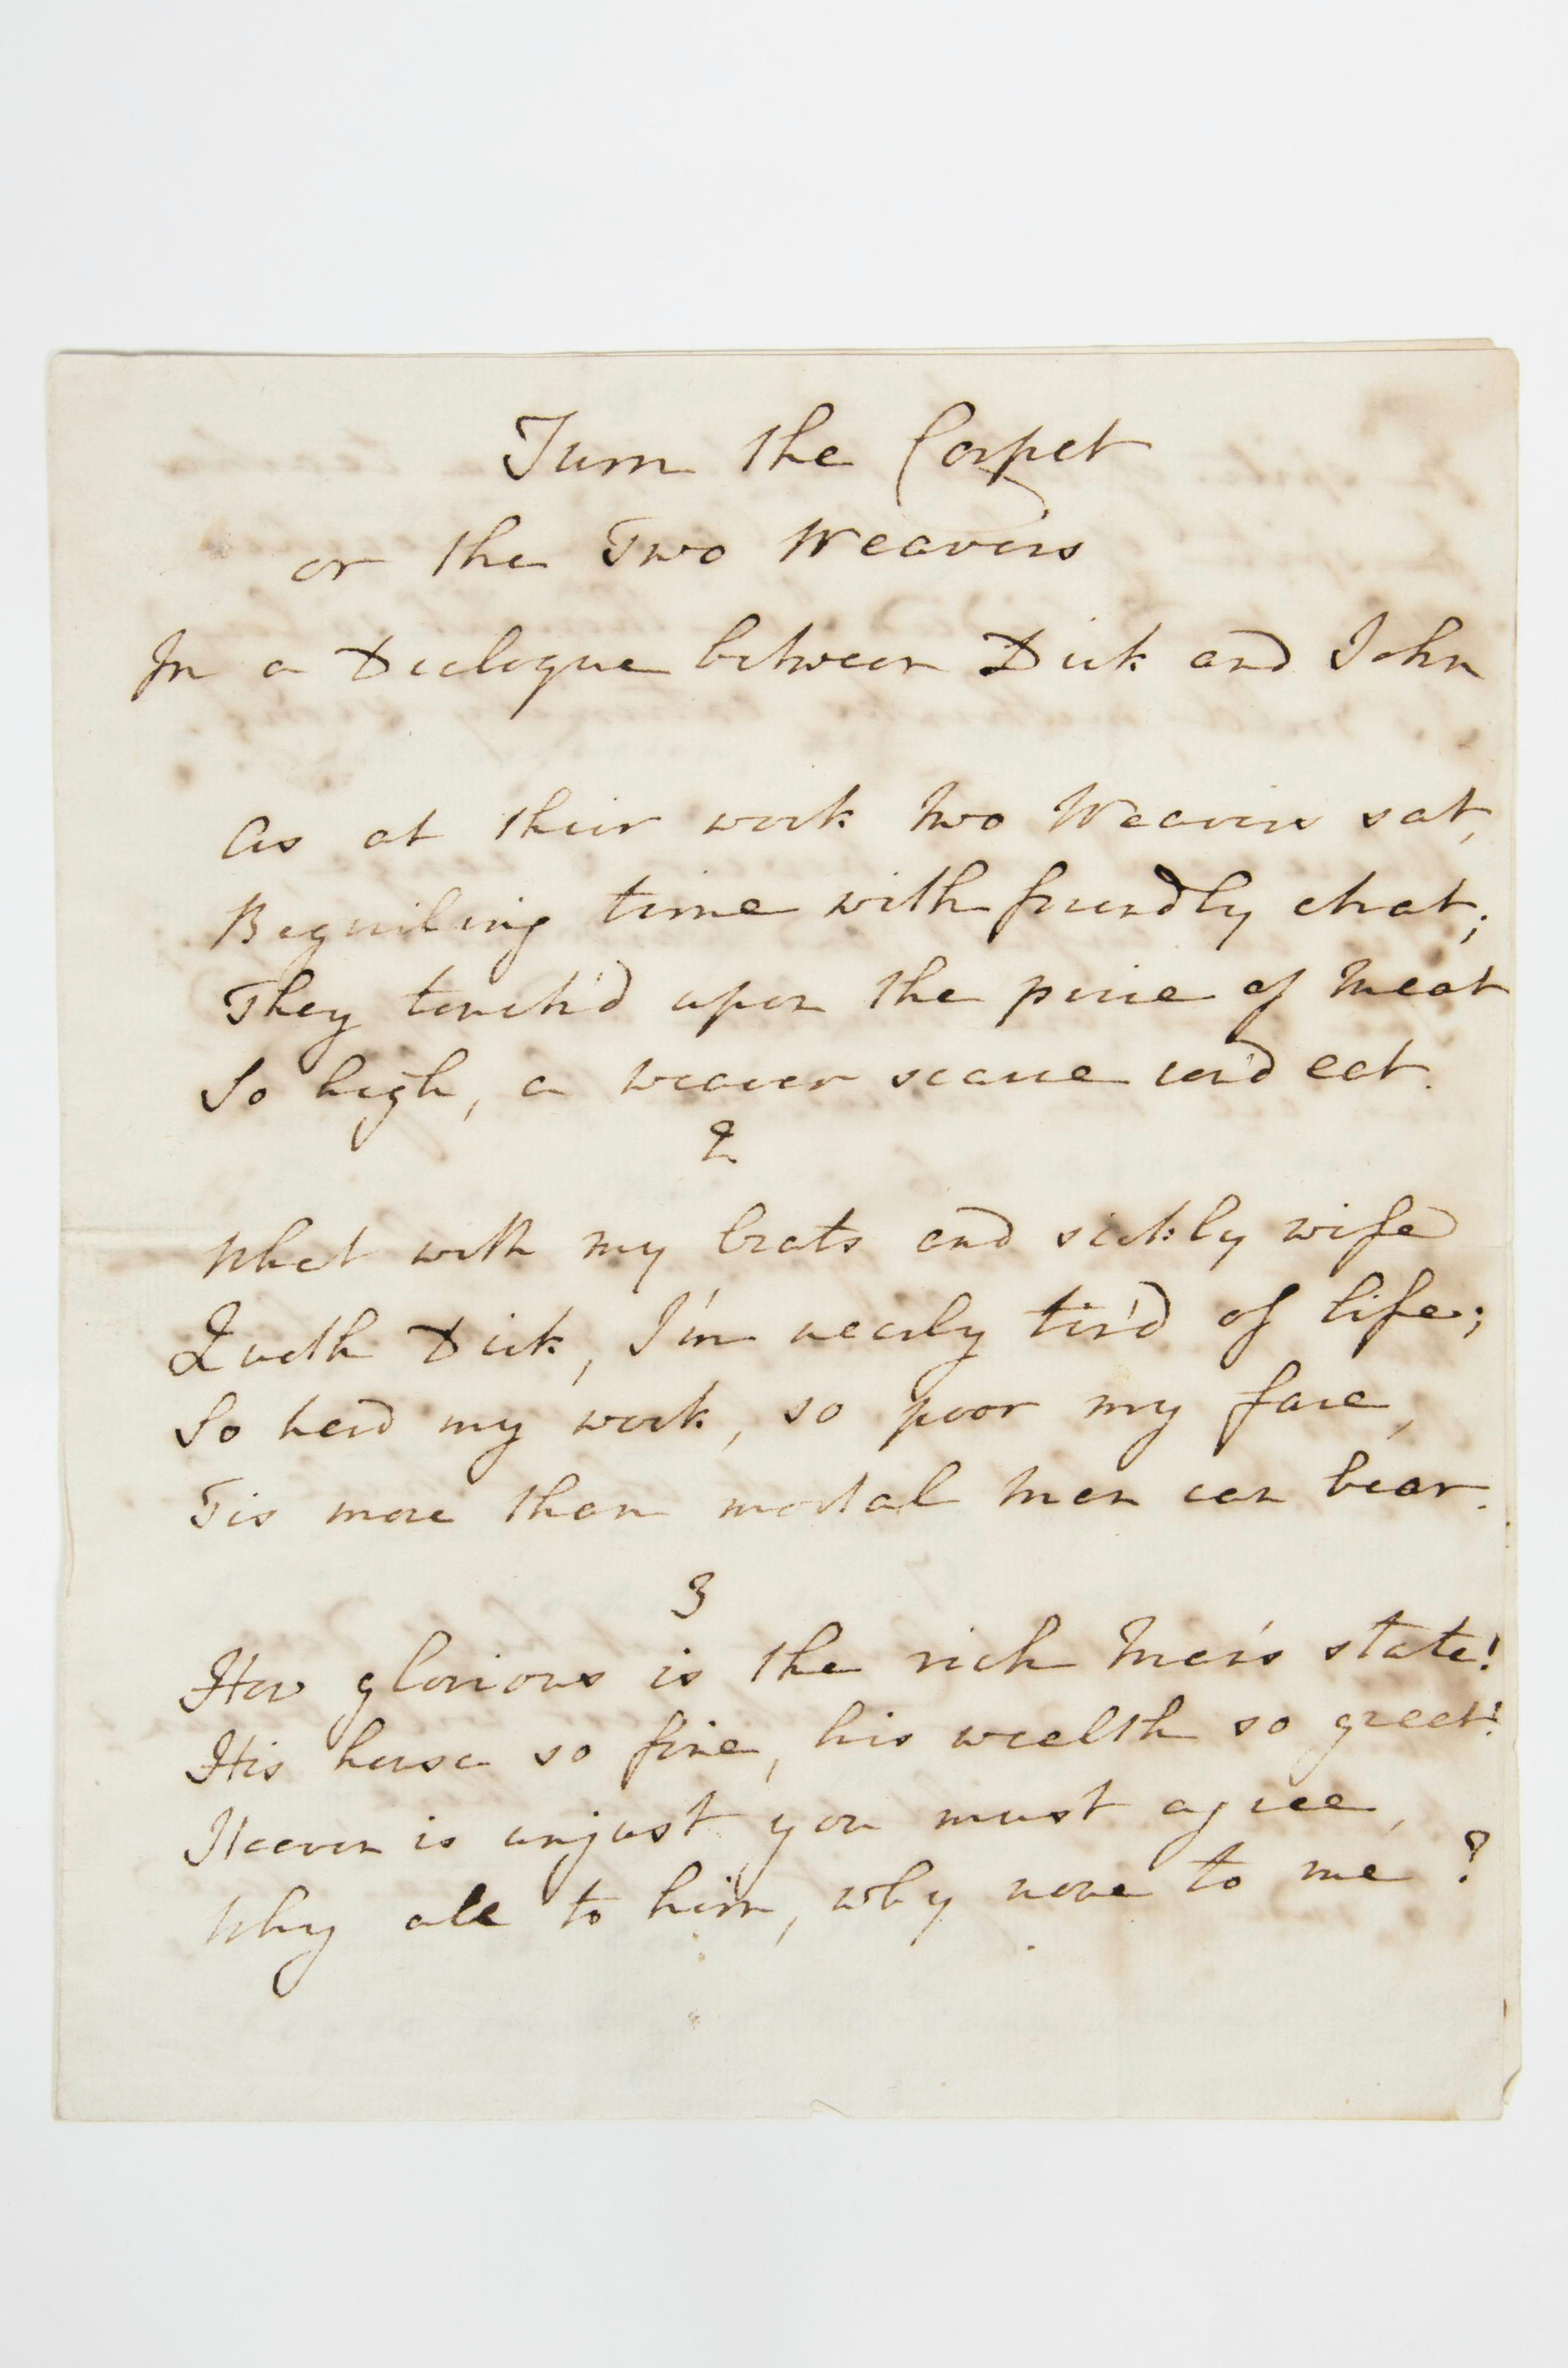 Turn the Carpet
or the Two Weavers
In a Dialogue between Dick and John
As at their work two Weavers sat,
Beguiling time with friendly chat;
They touch'd upon the price of Meat
So high, a weaver scarce cou'd eat.
2
What with my brats and sickly wife
Quoth Dick, I'm nearly tir'd of life;
So hard my work, so poor my fare,
Tis more than mortal Man can bear.
3
How glorious is the rich Man's state!
His house so fine, his wealth so great!
Heaven is unjust you must agree,
Why all to him, why none to me?